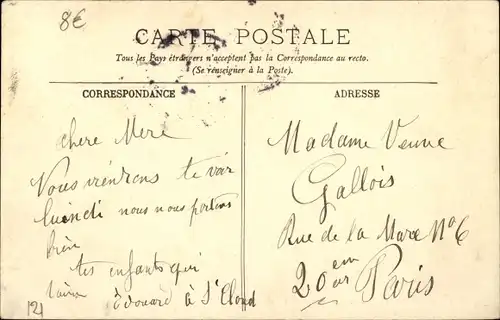 8€
CARTE POSTALE
Tous les Pays étrangers n'acceptent pas la Correspondance au recto.
(Se renseigner à la Poste).
CORRESPONDANCE
chere Mere
Vous viendrons te voir
luindi nous nous portons
bien
tes enfants qui
Edouard à St
121
ADRESSE
Madame Veuve
Gallois
Rue de la Mare No 6
20em arr
Paris